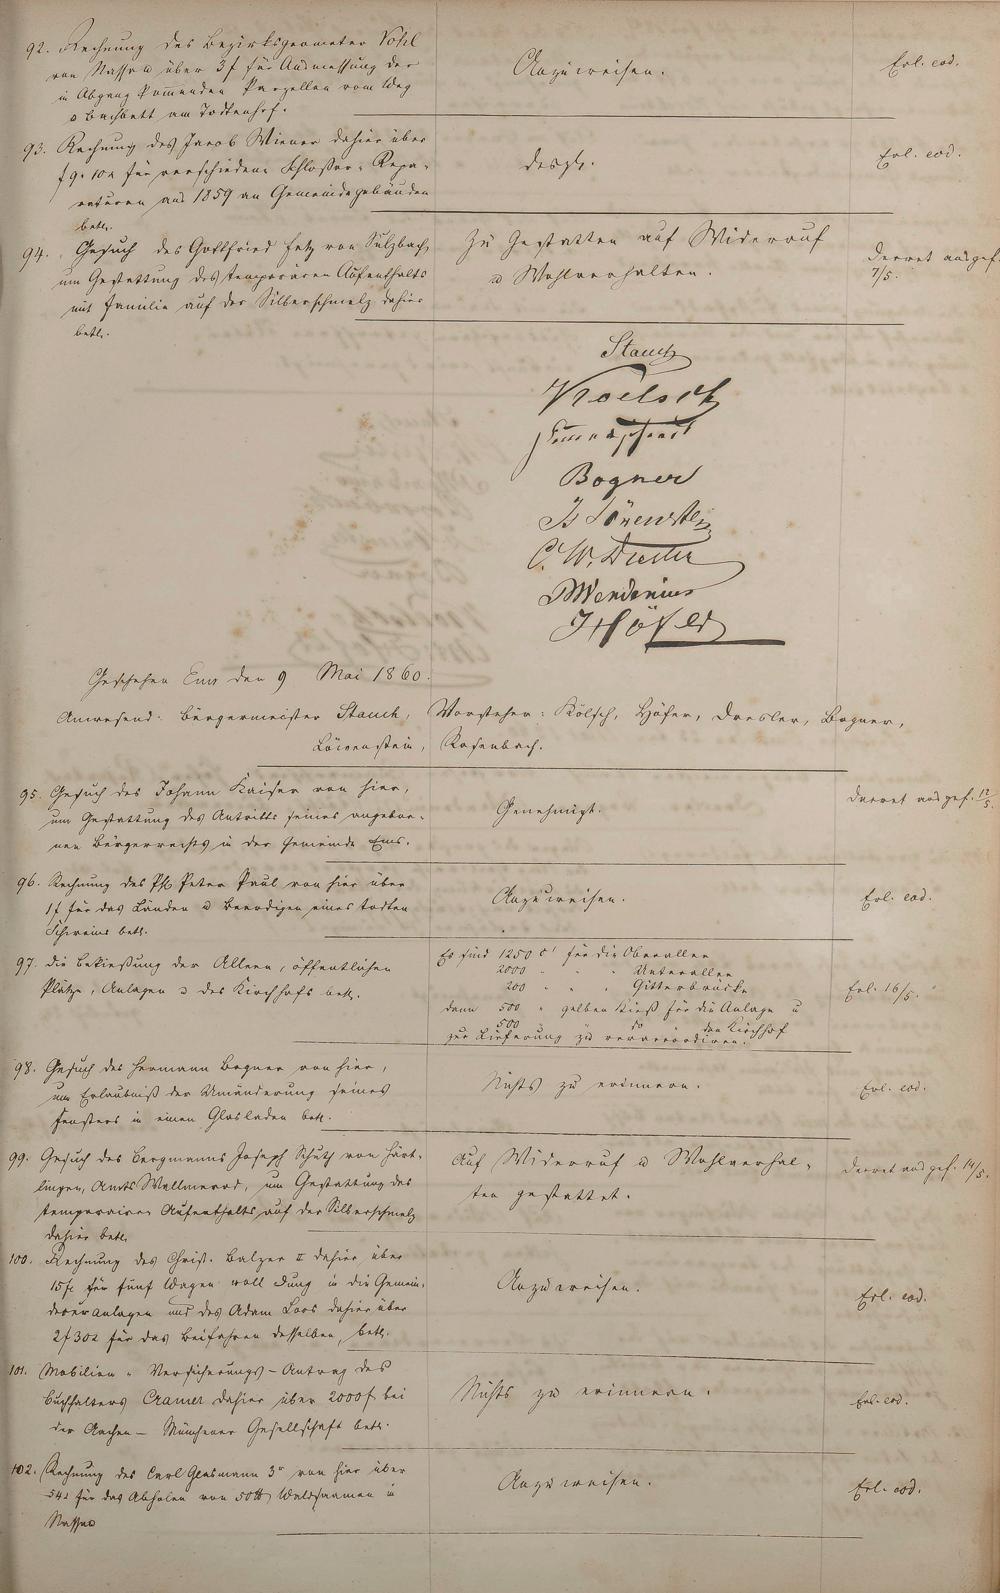 92. Rechnung des Bezirksgeometer Vohl
von Nassau über 3f für Ausmessung der
in Abgang kommenden Parzellen vom Weg
u Bachbett am Todtenhof.
Anzuweisen.
Erl. eod.
93. Rechnung des Jacob Wiener dahier über
f 9.10x für verschiedene Schlosser-Repa-
raturen aus 1859 an Gemeindegebäuden
betr.
desgl.
Erl. eod.
94. Gesuch des Gottfried Fetz von Sulzbach,
um Gestattung des temporären Aufenthalts
mit Familie auf der Silberschmelz dahier
betr.
Zu Gestatten auf Widerruf
u Wohlverhalten.
Decret ausgef.
7/5.
Stauch
Koelsch
Bogner
C. W. Dresler
J Höfer
Geschehen Ems den 9 Mai 1860.
Anwesend: Bürgermeister Stauch, Vorsteher: Kölsch, Höfer, Dresler, Bogner,
Löwenstein, Rosenbach.
95. Gesuch des Johann Kaiser von hier,
um Gestattung des Antritts seines angebor-
nen Bürgerrechts in der Gemeinde Ems.
Genehmigt.
Decret ausgef. 12/5.
96. Rechnung des Ph. Peter Paul von hier über
1f für das Länden u Beerdigen eines todten
Schweins betr.
Anzuweisen.
Erl. eod.
97. Die Bekießung der Alleen, öffentlichen
Plätze, Anlagen u des Kirchhofs betr.
Es sind 1250 c' für die Oberallee
2000 " " " Unterallee
200 " " " Gitterbrücke
dann 500 " gelben Kieß für die Anlage u
500 do den Kirchhof
zur Lieferung zu veraccordiren.
Erl. 16/5.
98. Gesuch des Hermann Bogner von hier,
um Erlaubniß der Umänderung seines
Fensters in einen Glasladen betr.
Nichts zu erinnern.
Erl. eod.
99. Gesuch des Bergmanns Joseph Schutz von Härt-
lingen, Amts Wallmerod, um Gestattung des
temporairen Aufenthalts auf der Silberschmelz
dahier betr.
Auf Widerruf u Wohlverhal-
ten gestattet.
Decret ausgef. 14/5.
100. Rechnung des Christ. Balzer II dahier über
15f für fünf Wagen voll Dung in die Gemein-
deanlagen und des Adam Loos dahier über
2f30x für das Beifahren desselben, betr.
Anzuweisen.
Erl. eod.
101. Mobilien-Versicherungs-Antrag des
Buchhalters Cramer dahier über 2000f bei
der Aachen-Münchener Gesellschaft betr.
Nichts zu erinnern.
Erl. eod.
102. Rechnung des Carl Glasmann 3r von hier über
54x für das Abholen von 50 ℔ Waldsaamen in
Nassau
Anzuweisen.
Erl. eod.